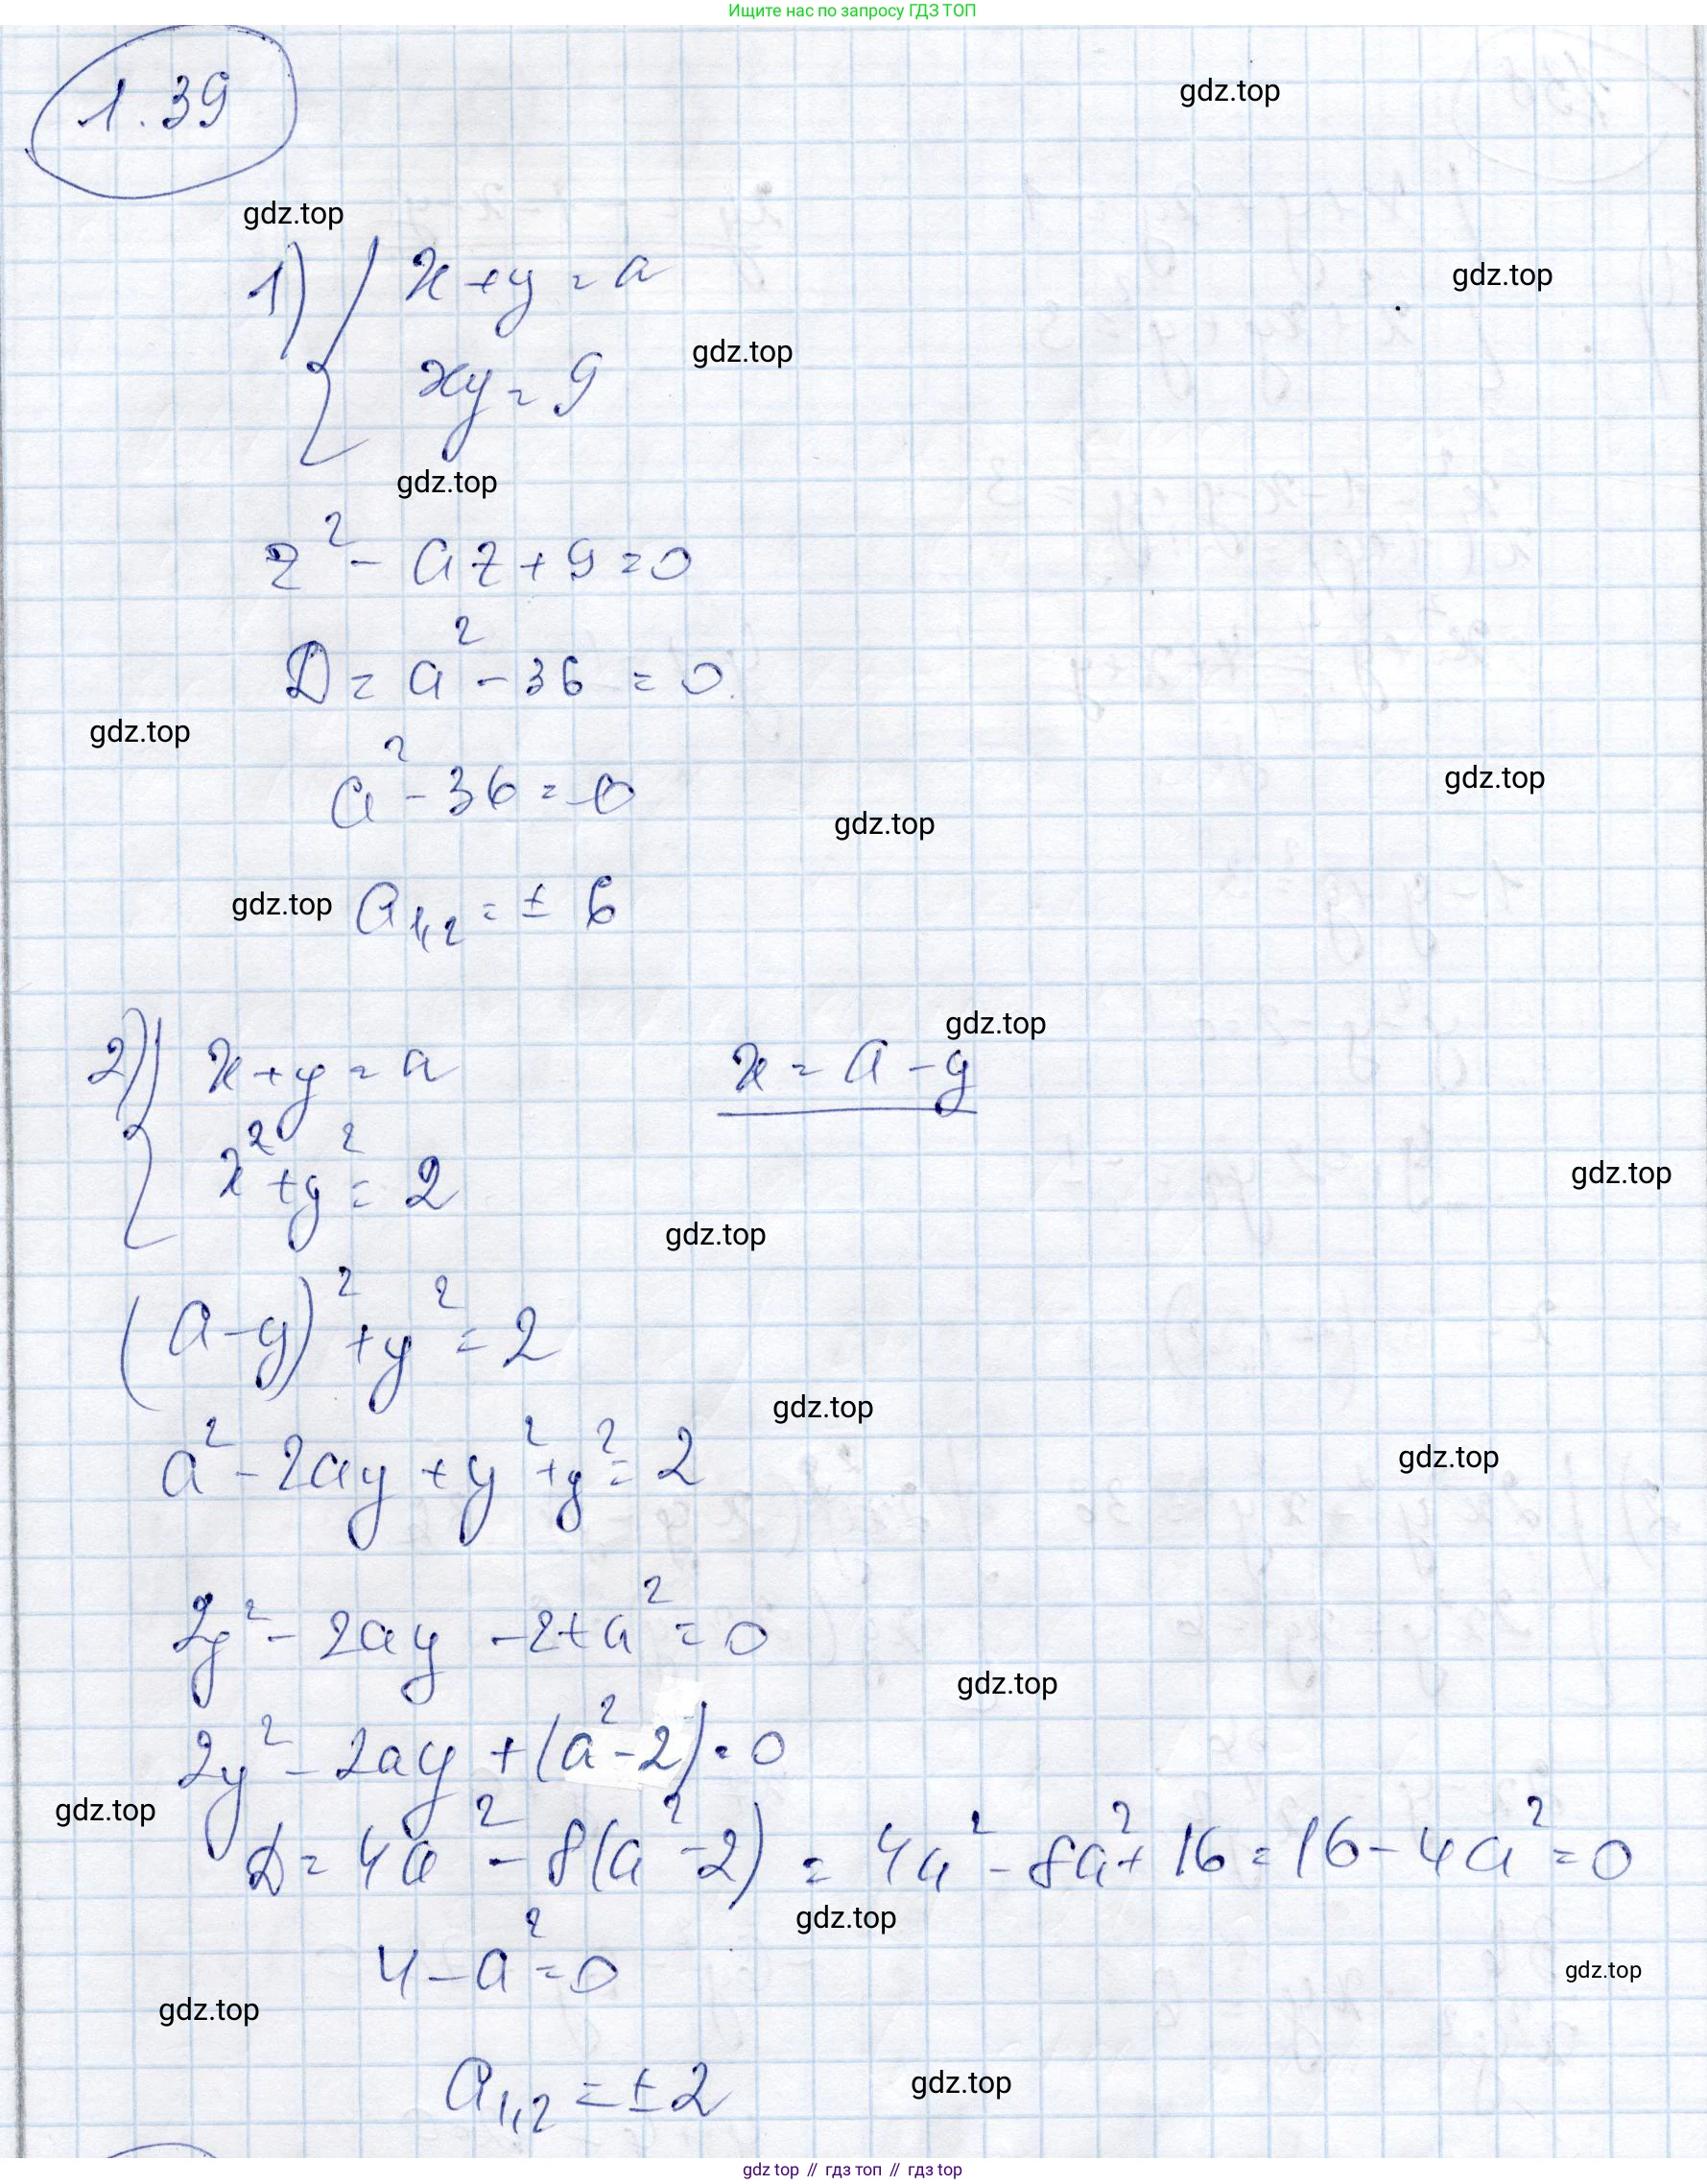 Ищите нас по запросу ГДЗ ТОП
1.39
gdz.top
gdz.top
1) { x + y = a
gdz.top
xy = 9
gdz.top
gdz.top
z² - az + 9 = 0
D = a² - 36 = 0
gdz.top
a² - 36 = 0
gdz.top
gdz.top
gdz.top
a₁,₂ = ± 6
2) { x + y = a
x = a - y
gdz.top
x² + y² = 2
gdz.top
gdz.top
(a - y)² + y² = 2
gdz.top
a² - 2ay + y² + y² = 2
gdz.top
2y² - 2ay - 2 + a² = 0
gdz.top
2y² - 2ay + (a² - 2) = 0
gdz.top
D = 4a² - 8(a² - 2) = 4a² - 8a² + 16 = 16 - 4a² = 0
gdz.top
4 - a² = 0
gdz.top
gdz.top
a₁,₂ = ± 2
gdz.top
gdz top // гдз топ // гдз top